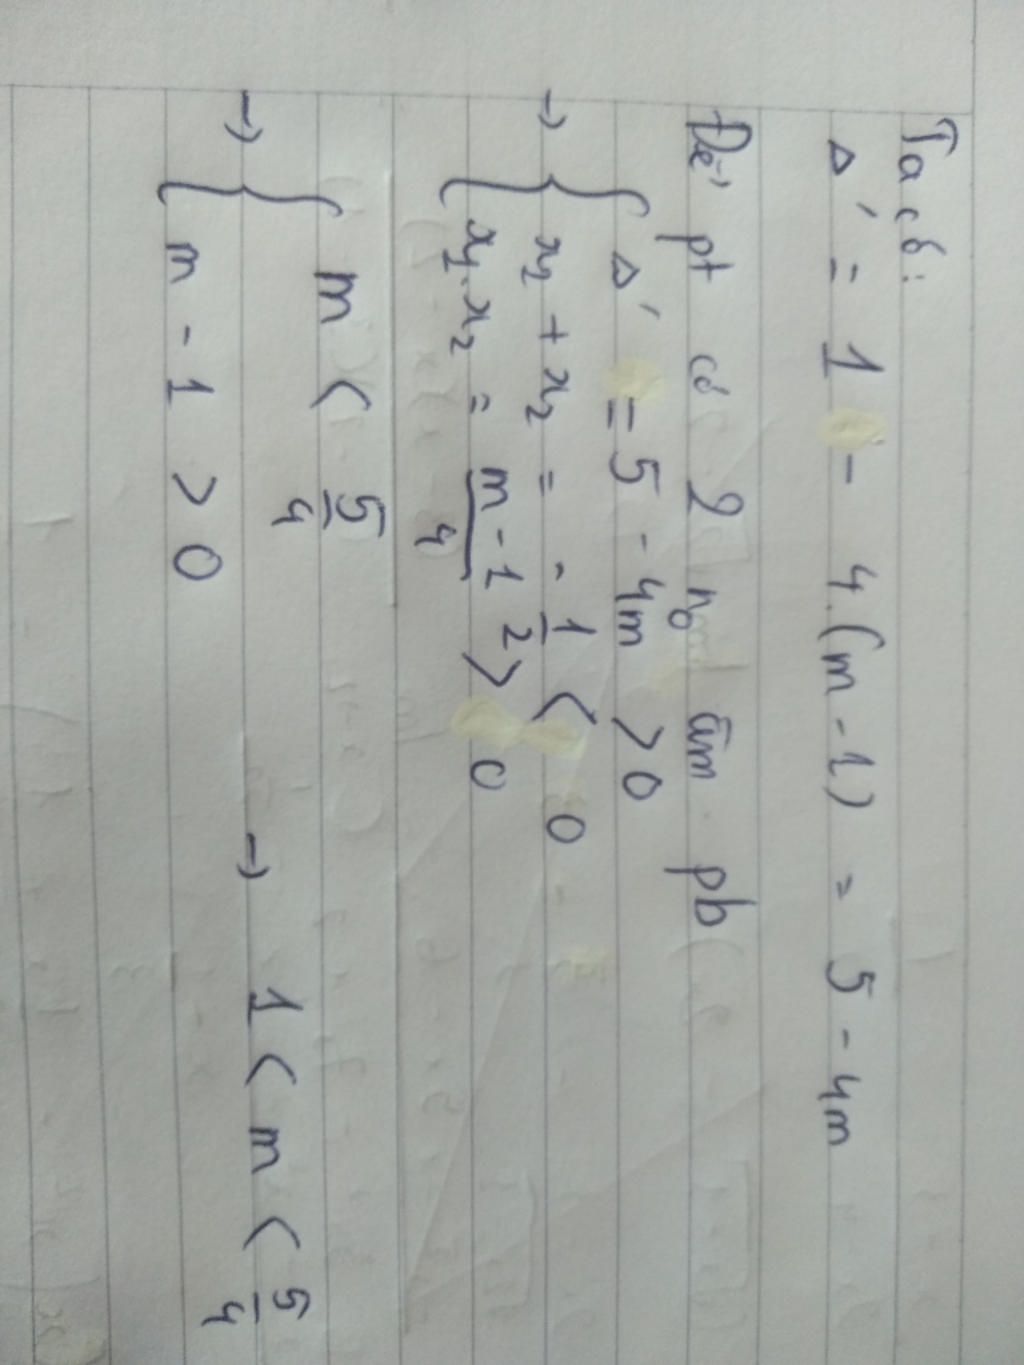 Ta có:
Δ' = 1 - 4.(m-1) = 5-4m
Để pt có 2 no âm pb
→ { Δ' = 5 - 4m > 0
x1 + x2 = -1/2 < 0
x1.x2 = m-1/4 > 0
→ { m < 5/4
m - 1 > 0 → 1 < m < 5/4